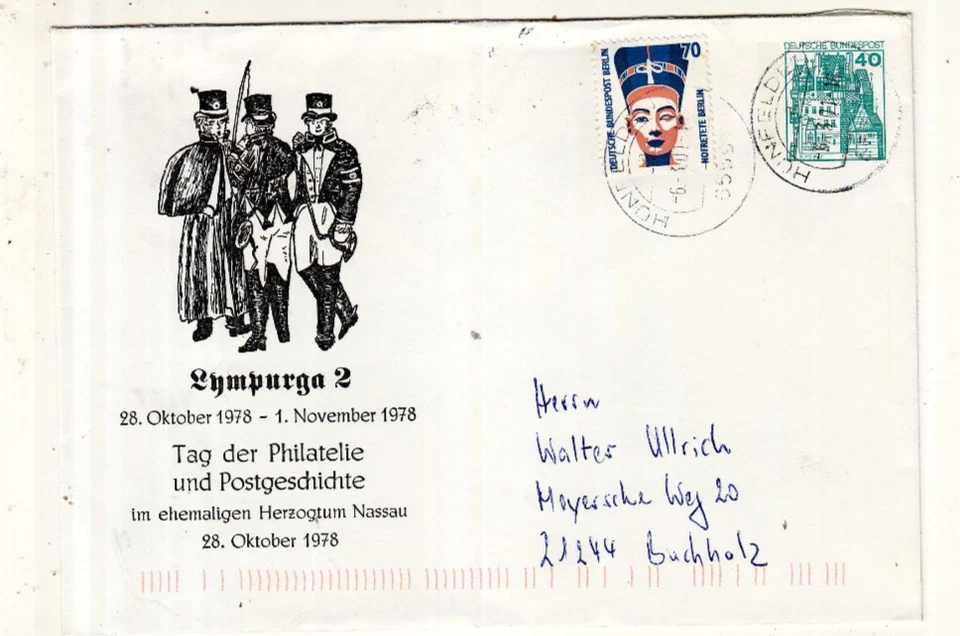 70
DEUTSCHE BUNDESPOST BERLIN
NOFRETETE BERLIN
DEUTSCHE BUNDESPOST
40
HÜNFELD
HÜNFELD
Lympurga 2
28. Oktober 1978 - 1. November 1978
Tag der Philatelie
und Postgeschichte
im ehemaligen Herzogtum Nassau
28. Oktober 1978
Herrn
Walter Ullrich
Meyersche Weg 20
21244 Buchholz